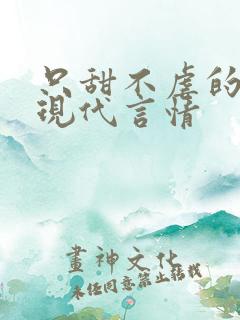 只甜不虐的
現代言情
畫神文化
未經同意禁止轉載